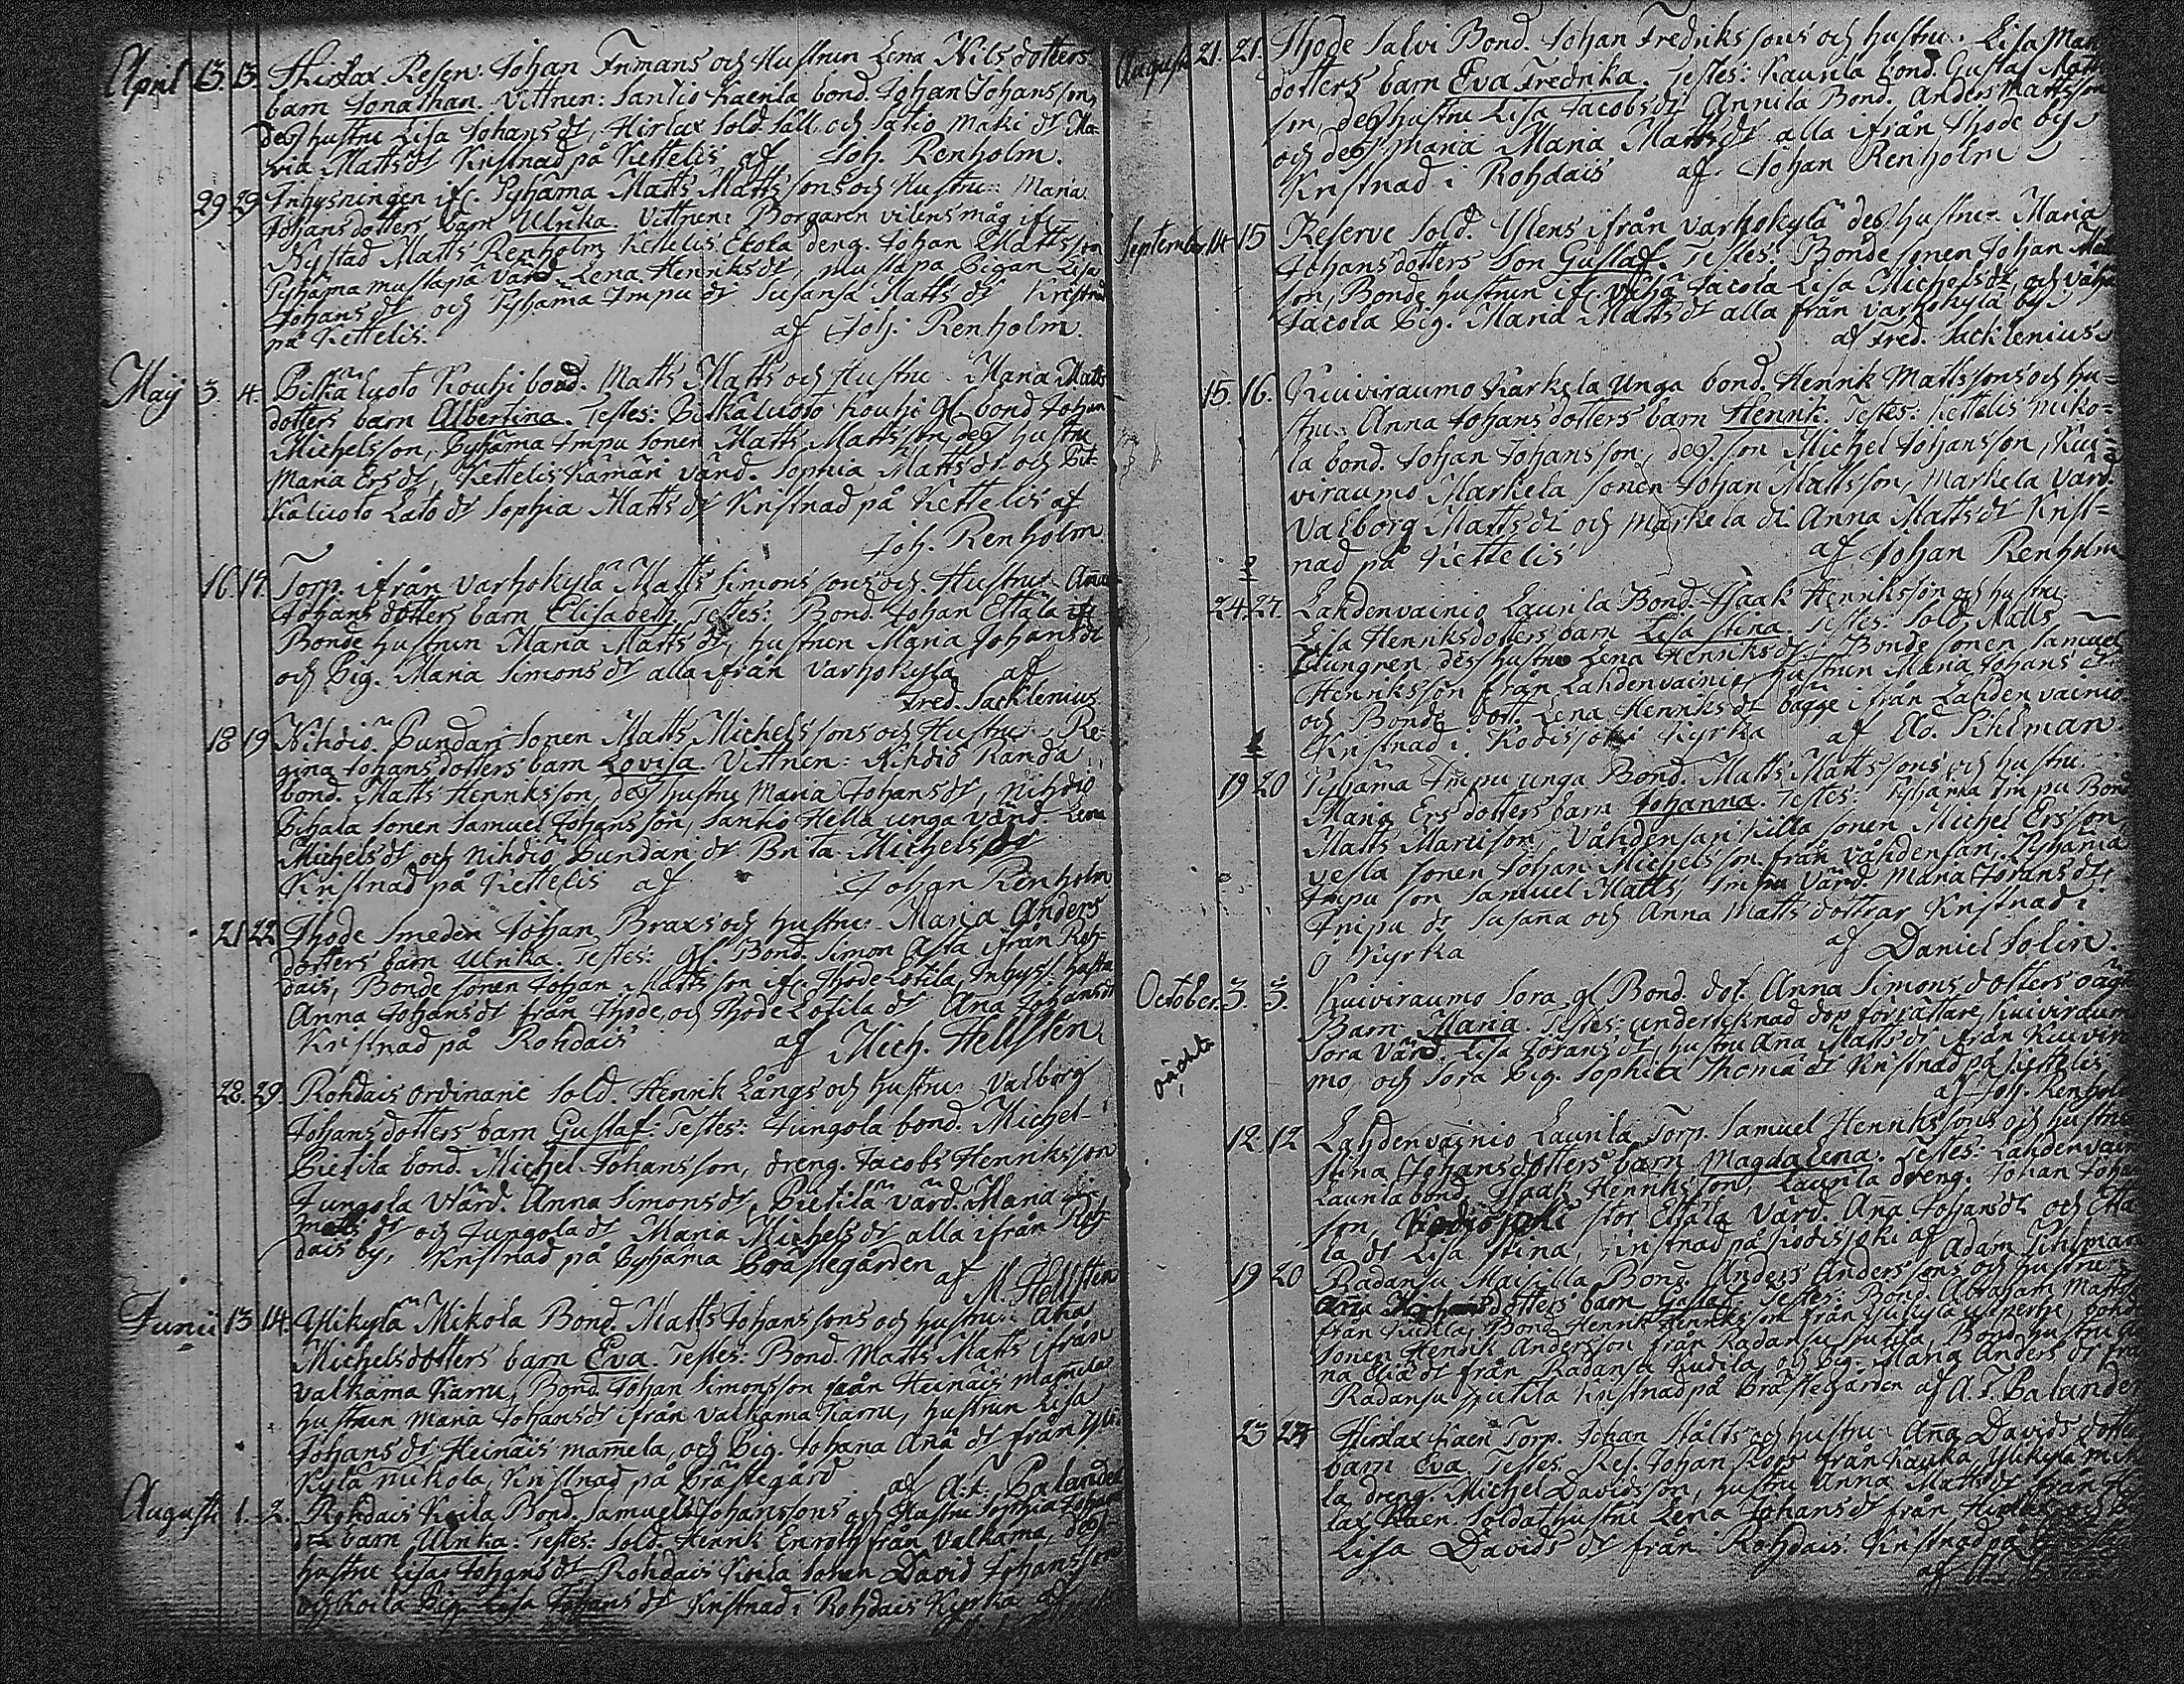 April 13. 13. Hirslax Reserv. Johan Frimans och Hustrun Lena Nils dotters
barn Jonathan. Vittnen: Santio Kaerila bond. Johan Johansson,
des hustru Lisa Johans dr, Hirlax Sold. Säll och Satio Maki dr Ma-
ria Matts dr Kristnad på Kettelis af Joh. Renholm.
29 29 Inhysningen ifr. Pyhäma Matts Matts sons och Hustru: Maria
Johans dotters barn Ulrika. Vittnen: Borgaren vilens måg ifr.
Nystad Matts Renholm, Kettelis Ekola deng. Johan Mattsson
Pyhäma mustapä värd. Lena Henriks dr, mustapä Pigan Lisa
Johans dr och Pyhäma Impu dr Susanna Matts dr Kristnad
på Kettelis. af Joh. Renholm.
Maij 3. 4. Pitkäluoto Kouhi bond. Matts Matts och Hustru Maria Matts
dotters barn Albertina. Testes: Pitkäluoto Kouhi gl. bond Johan
Michelsson, Pyhäma Impu sonen Matts Mattsson, des hustru
Maria Ers dr, Kettelis Kämäri värd. Sophia Matts dr och Pit-
käluoto Lato dr Sophia Matts dr Kristnad på Kettelis af
Joh. Renholm
16. 17. Torp. ifrån Varhokylä Matts Simons sons och Hustru Ana
Johans dotters barn Elisabeth. Testes: Bond. Johan Ettälä ifr.
Bonde hustrun Maria Matts dr, hustrun Maria Johans dr
och Pig. Maria Simons dr alla ifrån Varhokyla af
Fred. Sacklenius
18 19 Nihdiö Pundari Sonen Matts Michels sons och Hustru Re-
gina Johans dotters barn Lovisa. Vittnen: Nihdiö Randa
bond. Matts Henriksson, des hustru Maria Johans dr, Nihdiö
Pihala Sonen Samuel Johansson, Santio Hella unga värd Lena
Michels dr och Nihdiö Pundari dr Brita Michels dr
Kristnad på Kettelis af Johan Renholm
21 22 Ihode Smeden Johan Brax och hustru Maria Anders
dotters barn Ulrika. Testes: Gl. Bond. Simon Asta ifrån Roh-
dais, Bonde sonen Johan Mattsson ifr. Ihode Lotila, Inhys: hustru
Anna Johans dr från Ihode, och Ihode Lotila dr Ana Johans dr
Kristnad på Rohdais af Mich. Hellsten
28. 29. Rohdais ordinarie Sold. Henrik Långs och hustru Valborg
Johans dotters barn Gustaf: Testes: Jungola bond. Michel
Pietila bond. Michel Johansson, dreng. Jacobs Henriksson
Jungola Värd. Anna Simons dr, Pietilä värd. Maria
Matts dr och Jungola dr Maria Michels dr alla ifrån Roh-
dais by, Kristnad på Pyhäma Prästegården af
M. Hellsten
Junii 13. 14. Ylikylä Mikola Bond. Matts Johans sons och hustru Ana
Michelsdotters barn Eva. Testes: Bond. Matts Matts ifrån
Valkama Karru, Bond Johan Simonsson från Heinäis mamela
hustrun Maria Johans dr ifrån Valkama Karru, hustrun Lisa
Johans dr Heinäis mamela, och Pig. Johana Ana dr från Yli-
kylä nikola, Kristnad på Prästegård af A: F: Palander
Augusti 1. 2. Rohdais Koila Bond. Samuels Johanssons och Hustru Sophia Johans
dr barn Ulrika: Testes: Sold. Henrik Enroth från Valkama, des
hustru Lisa Johans dr Rohdais Koila sonen David Johansson
och Koila Pig. Lisa Johans dr Kristnad i Rohdais Kyrka af
Augusti 21. 21. Ihode Salvi Bond. Johan Fredriks sons och hustru Lisa Mar
dotters barn Eva Fredrika. Testes: Kaunla bond. Gustaf Matts
son, des hustru Lisa Jacobs dr Annila Bond. Anders Mattsson
och des maria Maria Matts dr alla ifrån Ihode by
Kristnad i Rohdais af. Johan Renholm
September 14 15 Reserve Sold. Ylens ifrån Varhokylä des hustru Maria
Johans dotters Son Gustaf. Testes: Bonde sonen Johan
son, Bonde hustrun ifr. Vähä Jacola Lisa Michels dr, och Vähä
Jacola Pig. Maria Matts dr alla från Varhokylä by
af Fred. Sacklenius
15. 16. Kuiviraumo Karkela Unga bond. Henrik Matts sons och hu-
stru Anna Johans dotters barn Henrik. Testes: Kettelis Niko-
la bond. Johan Johansson, des son Michel Johansson, Kui-
viraumo Markela sonen Johan Mattsson, Markela Värd.
Valborg Matts dr och Markela dr Anna Matts dr Krist-
nad på Kettelis af Johan Renholm
2
24 27. Lahdenvainio Laurila Bond. Isaak Henriksson och hustru
Lisa Henriksdotters barn Lisa Stina. Testes: Sold. Matts
Ljungren dess hustru Lena Henriks dr, Bonde sonen Samuel
Henriksson från Lahdenvainio, hustrun Maria Johans dr
och Bonde dott. Lena Henriks dr bägge ifrån Lahden vainio
Kristnad i Kodisjoki Kyrka af Ad. Pihlman
1
19 20 Pyhäma Impu unga Bond. Matts Matts sons och hustru
Maria Ers dotters barn Johanna. Testes: Pyhäma Impu Bond
Matts Martisson, Vähdensari Killa sonen Michel Ersson
vesla sonen Johan Michelsson från vähdensari, Pyhäma
Impu son Samuel Matts, Impu Värd. Maria Jörans dr,
Impu dr Susana och Anna Matts dottrar Kristnad i
Kyrka af Daniel Solin.
October. 3. 3. Kuiviraumo Sora gl Bond. dot. Anna Simons dotters oägta
oächta
Barn Maria. Testes: undertecknad dop förrättare, Kuiviraumo
Sora Värd. Lisa Jörans dr, hustru Ana Matts dr ifrån Kuivirau
mo, och Sora Pig. Sophia Thoma dr Kristnad på Kettelis
af Joh. Renholm
12. 12 Lahdenvainio Laurila Torp. Samuel Henrikssons och hustru
Stina Johans dotters barn Magdalena. Testes: Lahdenvain
Laurila bond. Isaak Henriksson, Laurila dreng. Johan Johans
son, Kodisjoki stor Ettälä Värd. Ana Johans dr och Että
la dr Lisa Stina, Kristnad på Kodisjoki af Adam Pihlman
19 20 Radansu Maisilla Bond. Anders Anders sons och hustru
dotters barn Gustaf. Testes: Bond. Abraham Matts
från Kudila, Bond Henrik Henriksson från Ylikylä
sonen Henrik Andersson från Radansu, Bond hustru
na Elia dr från Radansu Kudila och Pig. Maria Anders dr från
Radansu Kristnad på Prästegården af A. F. Palander
23 24 Hirslax Kaen Torp. Johan Stålts och hustru Ana Davids dotters
barn Eva. Testes. Res. Johan Rops från Kauka, Ylikylä miko
la dreng. Michel Davidsson, hustru Anna Matts dr från Hir
lax Kaen Soldat hustru Lena Johans dr från Hirslax och
Lisa Davids dr från Rohdais. Kristnad på
af